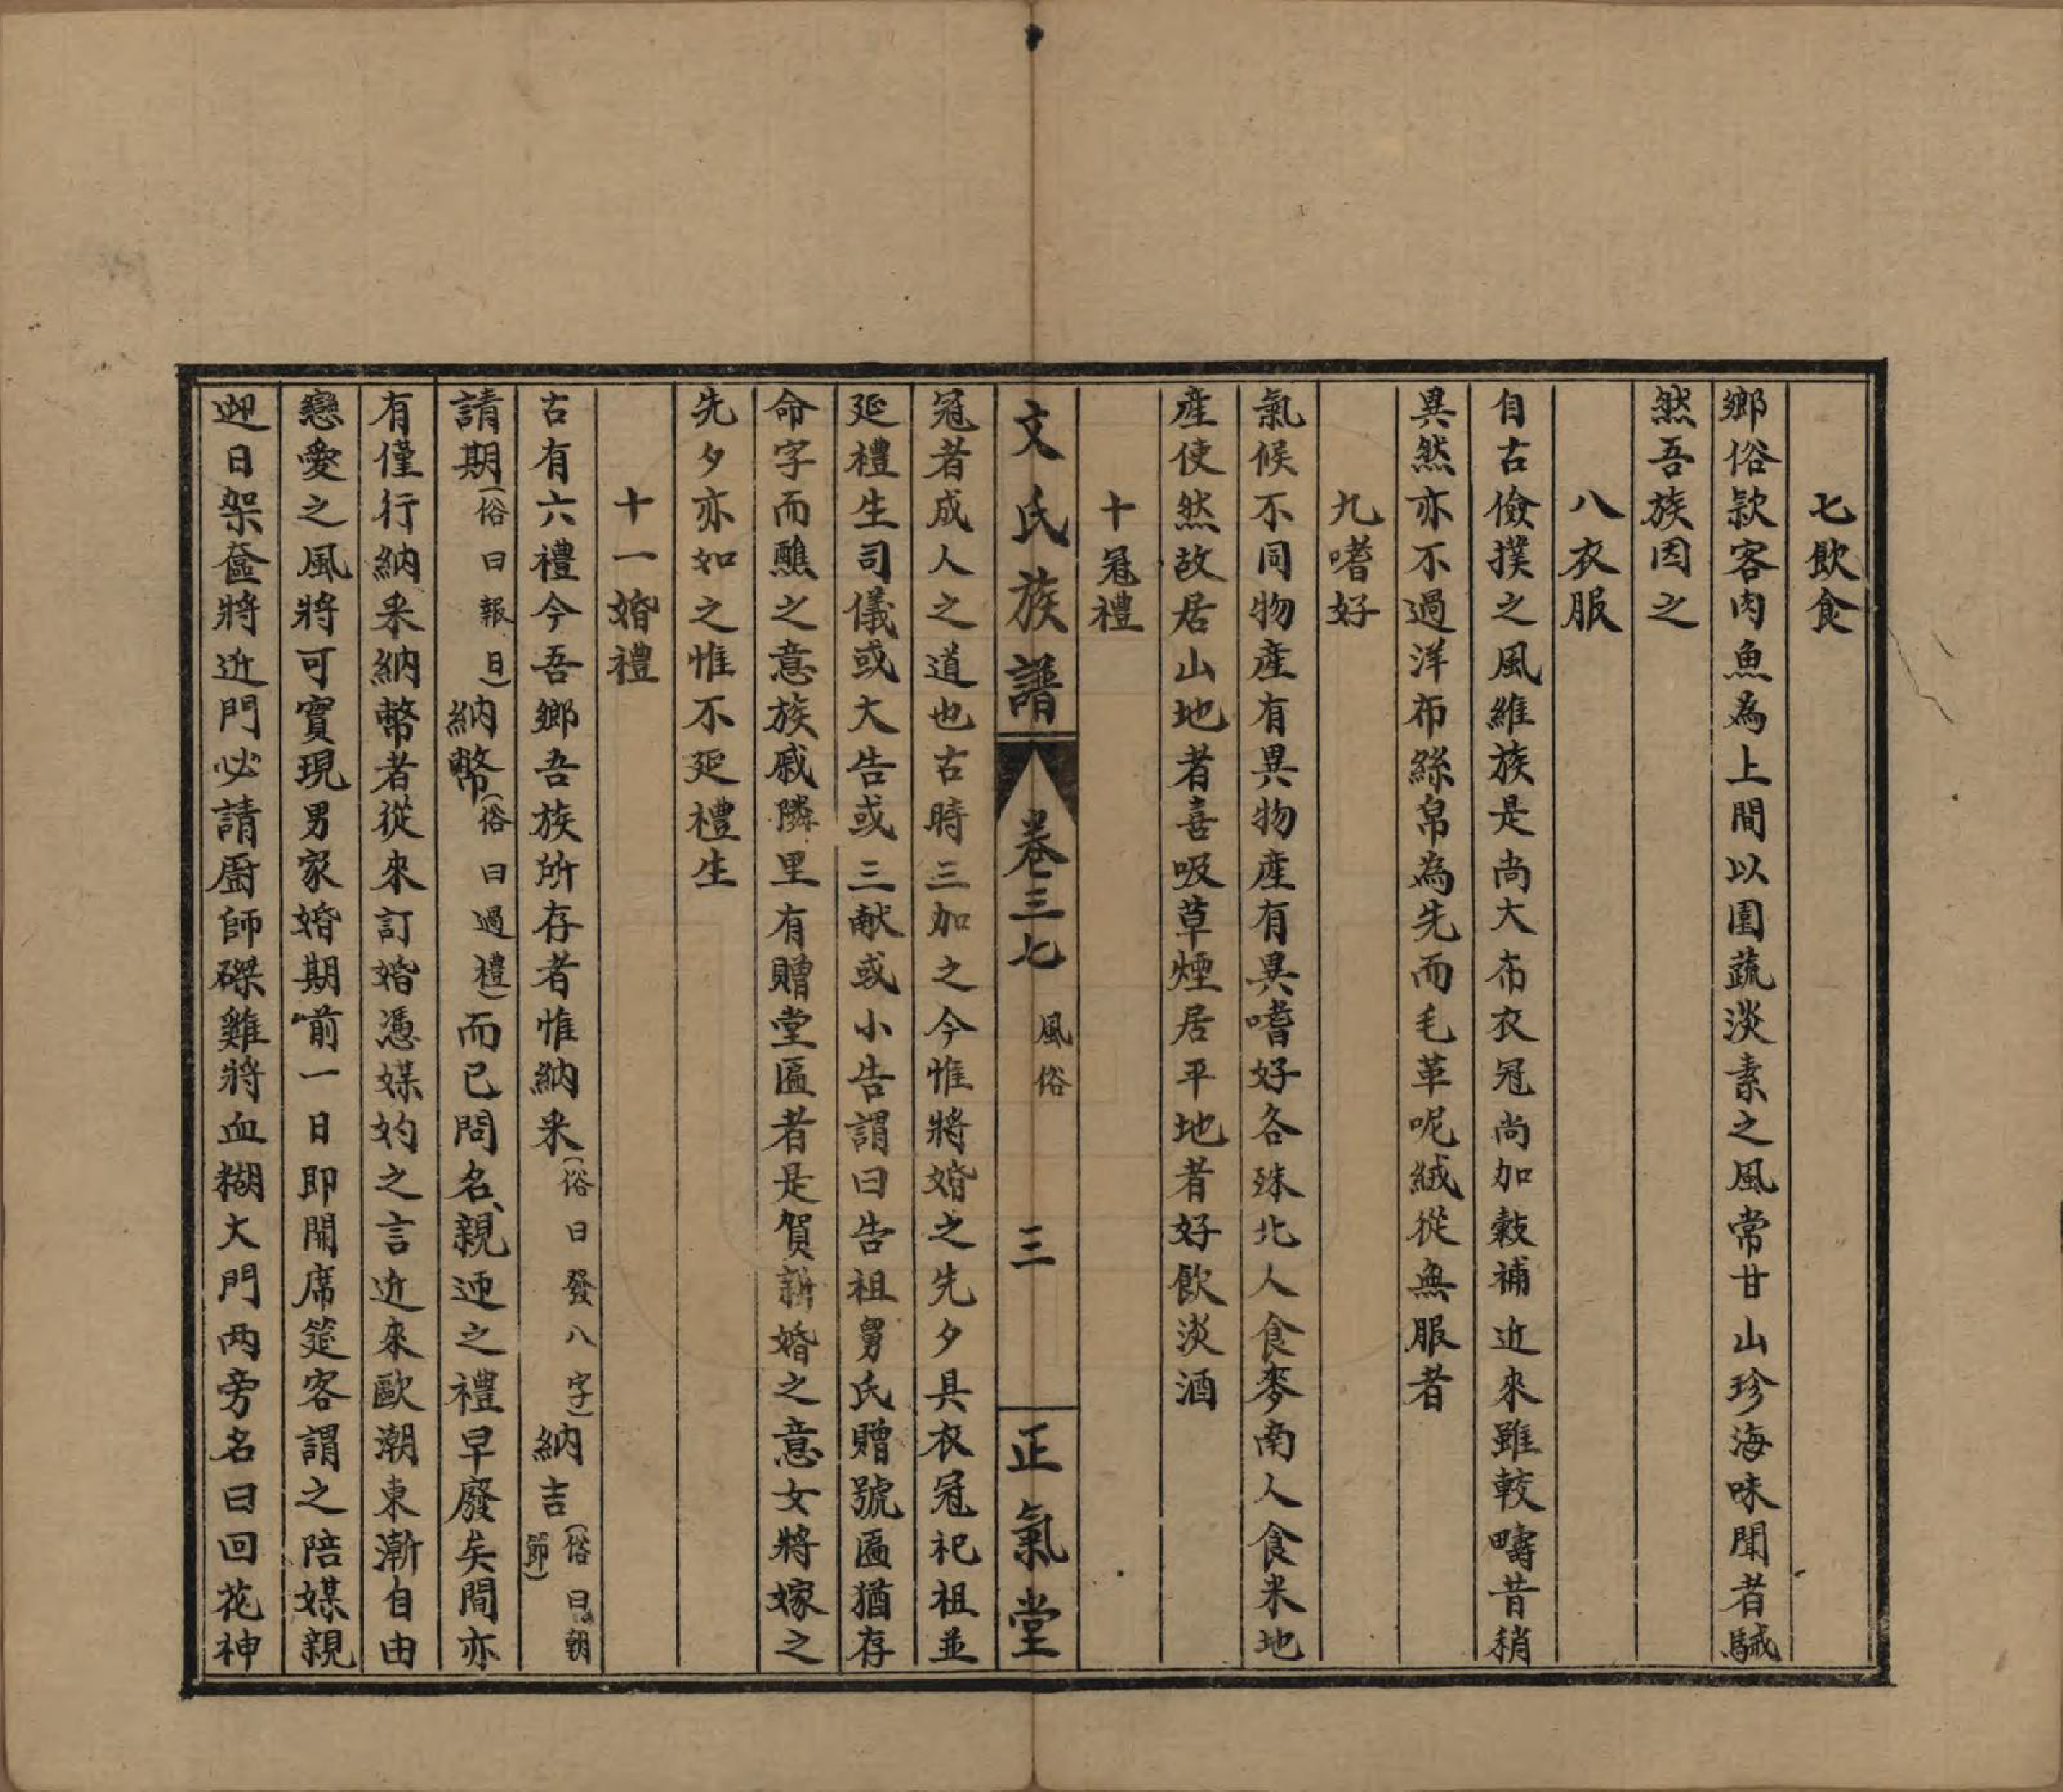 七飲食
鄉俗欵客肉魚為上間以園蔬淡素之風常甘山珍海味聞者駴
然吾族因之
八衣服
自古儉撲之風維族是尚大布衣冠尚加敹補近來雖較疇昔稍
異然亦不過洋布絲帛為先而毛革呢絨從無服者
九嗜好
氣候不同物產有異物產有異嗜好各殊北人食麥南人食米地
產使然故居山地者喜吸草煙居平地者好飲淡酒
十冠禮
文氏族譜 卷三七 風俗 三 正氣堂
冠者成人之道也古時三加之今惟將婚之先夕具衣冠祀祖並
延禮生司儀或大告或三献或小告謂曰告祖舅氏贈號匾猶存
命字而醮之意族戚隣里有贈堂匾者是賀新婚之意女將嫁之
先夕亦如之惟不延禮生
十一婚禮
古有六禮今吾鄉吾族所存者惟納采(俗曰發八字)納吉(俗曰朝節)
請期(俗曰報日)納幣(俗曰過禮)而已問名、親迎之禮早廢矣間亦
有僅行納采納幣者從來訂婚憑媒妁之言近來歐潮東漸自由
戀愛之風將可實現男家婚期前一日即開席筵客謂之陪媒親
迎日架奩將近門必請廚師磔雞將血糊大門两旁名曰回花神